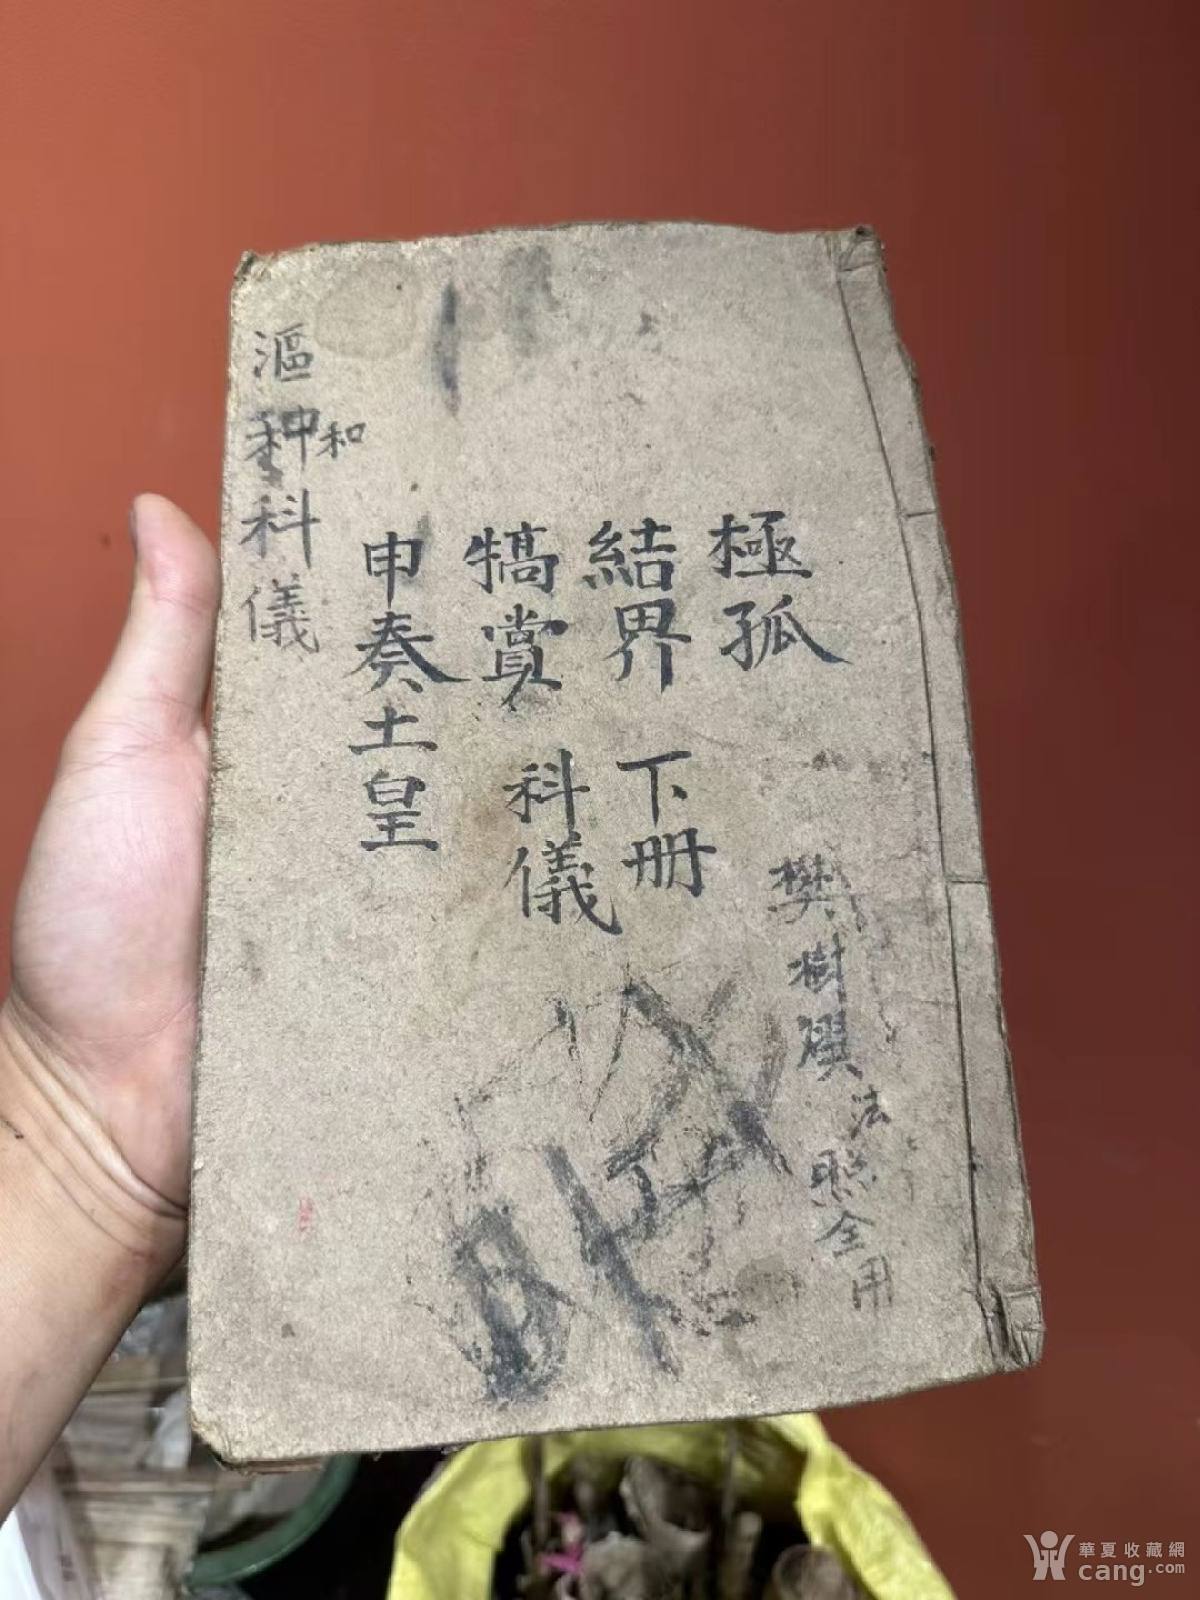 極孤
結界 下册
犒賞 科儀
申奏土皇
漚种科儀
和
樊樹
法
照全用
華夏收藏網
cang.com